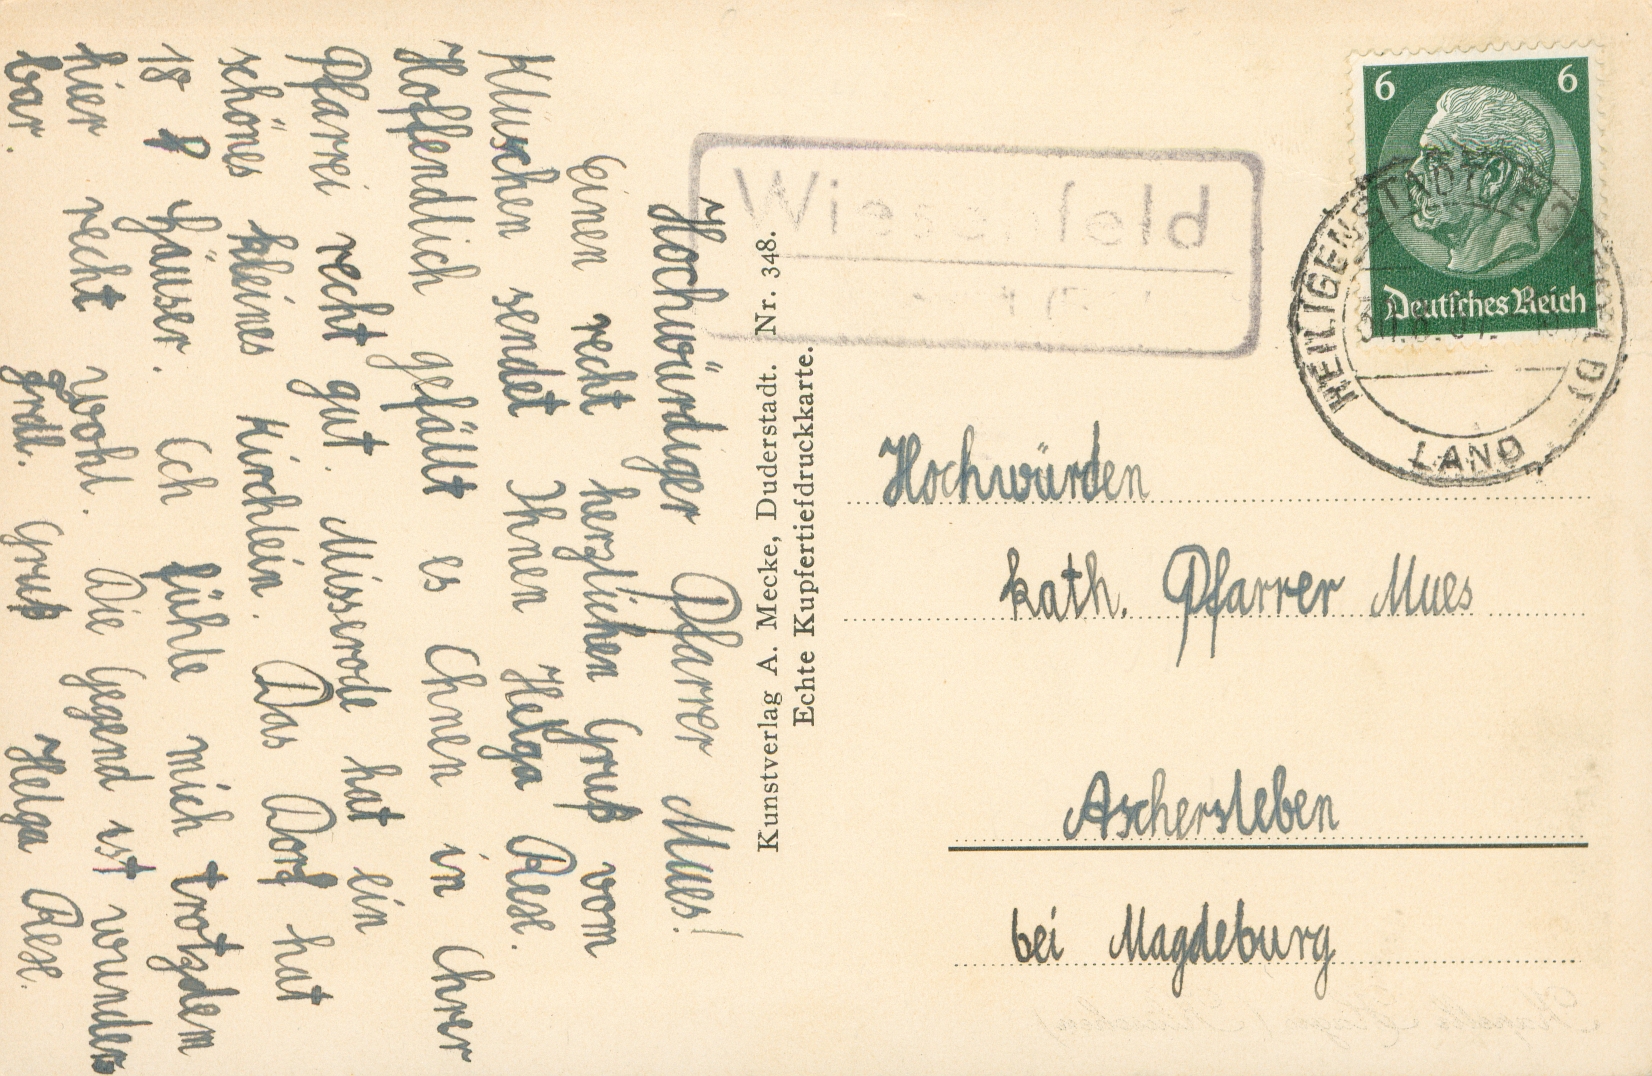 Hochwürdiger Pfarrer Mues!
Einen recht herzlichen Gruß vom
Klüschen sendet Ihnen Helga Rese.
Hoffendlich gefällt es Ihnen in Ihrer
Pfarrei recht gut. Misserode hat ein
schönes kleines Kirchlein. Das Dorf hat
18 Häuser. Ich fühle mich trotzdem
hier recht wohl. Die Gegend ist wunder
bar. Frdl. Gruß Helga Rese.
Kunstverlag A. Mecke, Duderstadt. Nr. 348.
Echte Kupfertiefdruckkarte.
Wiesenfeld
6 6
Deutsches Reich
HEILIGENSTADT
LAND
Hochwürden
kath. Pfarrer Mues
Aschersleben
bei Magdeburg